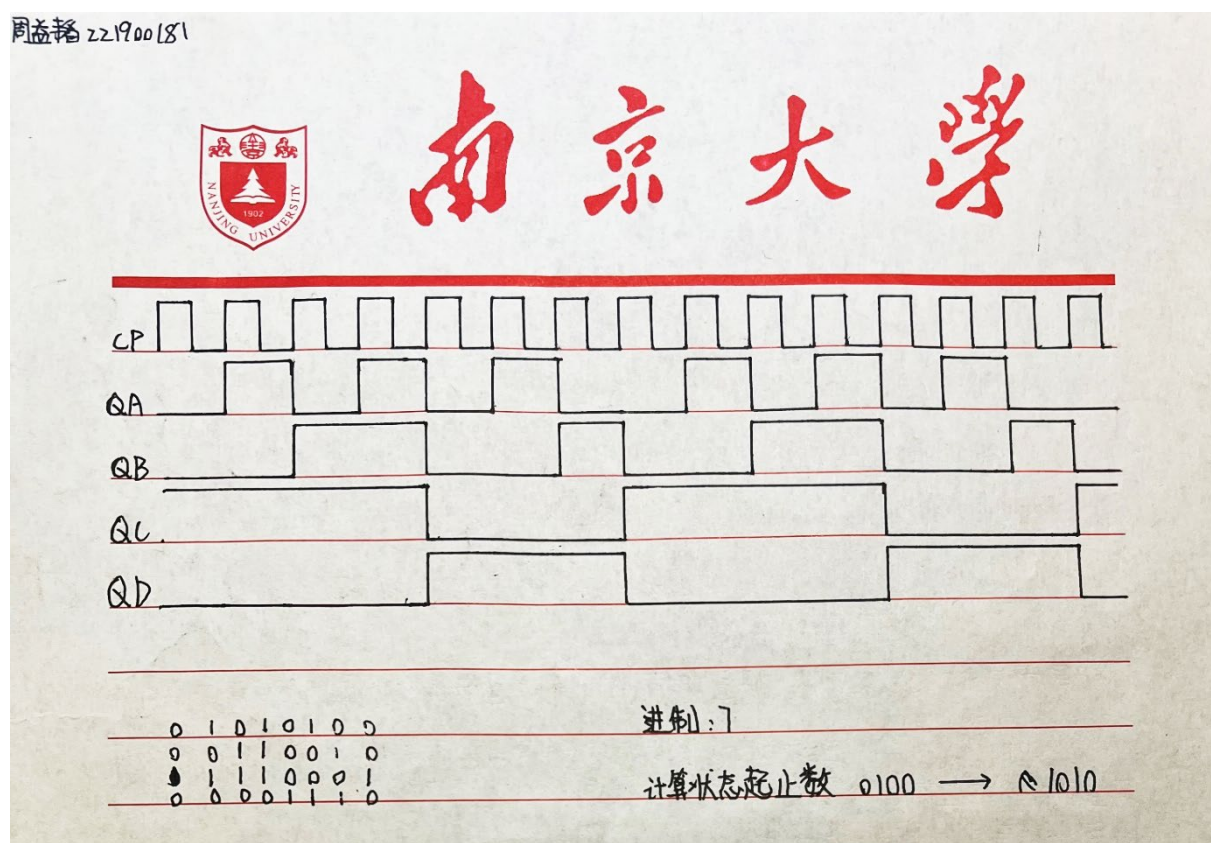 周益韬 221900181
南京大学
1902
NANJING UNIVERSITY
CP
QA
QB
QC
QD
0 1 0 1 0 1 0 0
0 0 1 1 0 0 1 0
1 1 1 0 0 0 1
0 0 0 0 1 1 1 0
进制:7
计算状态起止数 0100 → 1010